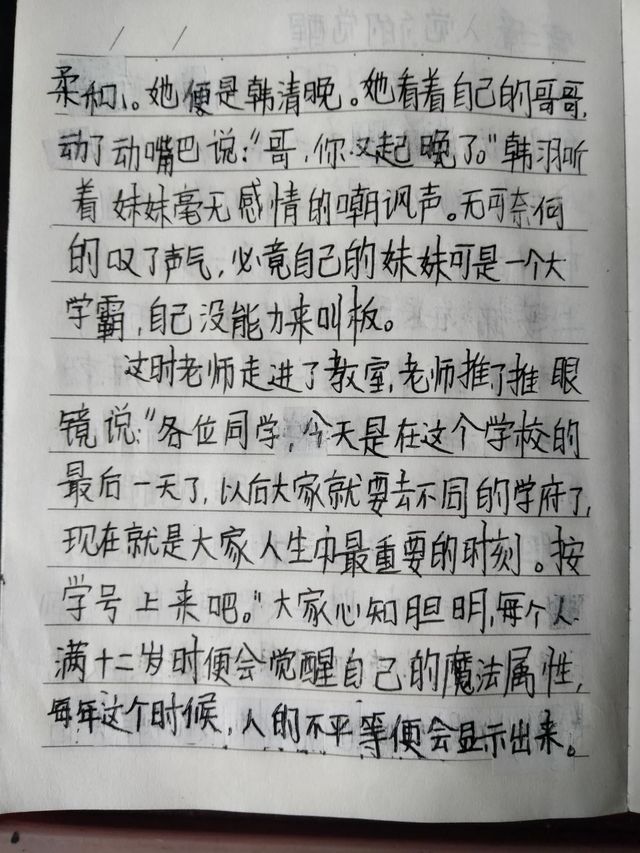 柔和。她便是韩清晚。她看着自己的哥哥,
动了动嘴巴说:"哥,你又起晚了。"韩羽听
着妹妹毫无感情的嘲讽声。无可奈何
的叹了声气,必竟自己的妹妹可是一个大
学霸,自己没能力来叫板。
这时老师走进了教室,老师推了推眼
镜说:"各位同学,今天是在这个学校的
最后一天了,以后大家就要去不同的学府了,
现在就是大家人生中最重要的时刻。按
学号上来吧。"大家心知胆明,每个人
满十二岁时便会觉醒自己的魔法属性,
每年这个时候,人的不平等便会显示出来。